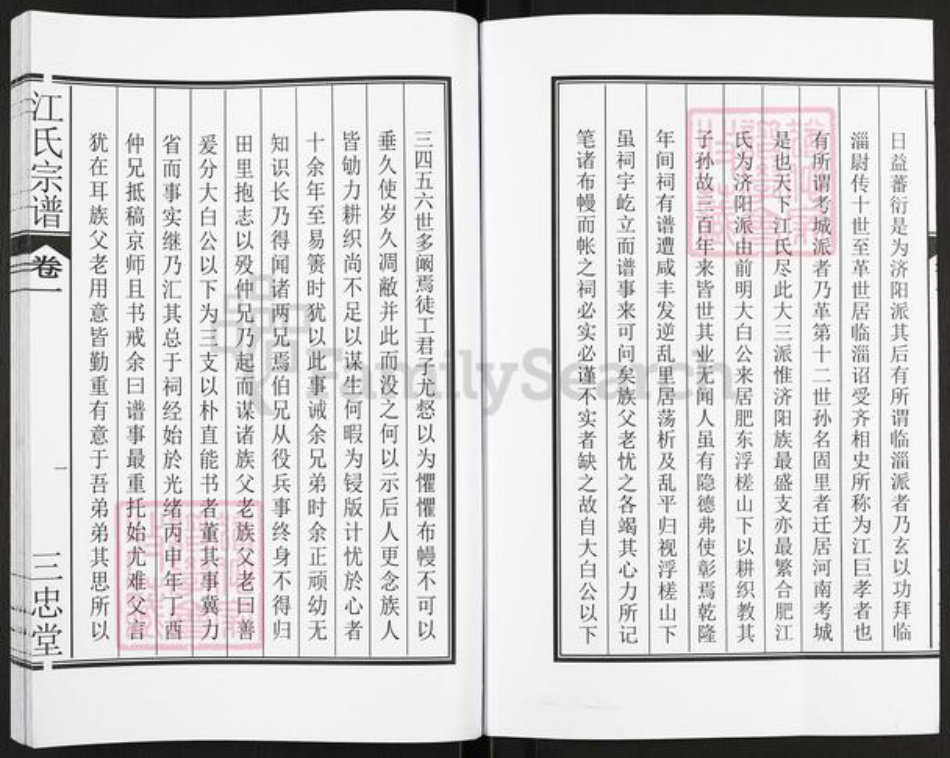 日益蕃衍是为济阳派其后有所谓临淄派者乃玄以功拜临
淄尉传十世至革世居临淄诏受齐相史所称为江巨孝者也
有所谓考城派者乃革第十二世孙名固里者迁居河南考城
是也天下江氏尽此大三派惟济阳族最盛支亦最繁合肥江
氏为济阳派由前明大白公来居肥东浮槎山下以耕织教其
子孙故三百年来皆世其业无闻人虽有隐德弗使彰焉乾隆
年间祠有谱遭咸丰发逆乱里居荡析及乱平归视浮槎山下
虽祠宇屹立而谱事来可问矣族父老忧之各竭其心力所记
笔诸布幔而帐之祠必实必谨不实者缺之故自大白公以下
三四五六世多阙焉徒工君子尤怒以为惧惧布幔不可以
垂久使岁久凋敝并此而没之何以示后人更念族人
皆劬力耕织尚不足以谋生何暇为锓版计忧於心者
十余年至易箦时犹以此事诫余兄弟时余正顽幼无
知识长乃得闻诸两兄焉伯兄从役兵事终身不得归
田里抱志以殁仲兄乃起而谋诸族父老族父老曰善
爰分大白公以下为三支以朴直能书者董其事冀力
省而事实继乃汇其总于祠经始於光绪丙申年丁酉
仲兄抵稿京师且书戒余曰谱事最重托始尤难父言
犹在耳族父老用意皆勤重有意于吾弟弟其思所以
江氏宗谱
卷一
一
三忠堂
FamilySearch